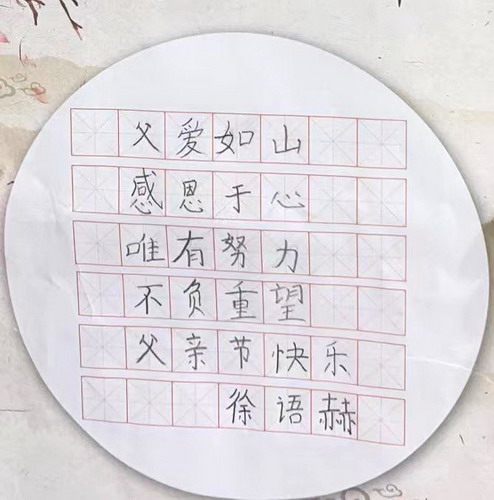 父爱如山
感恩于心
唯有努力
不负重望
父亲节快乐
徐语赫